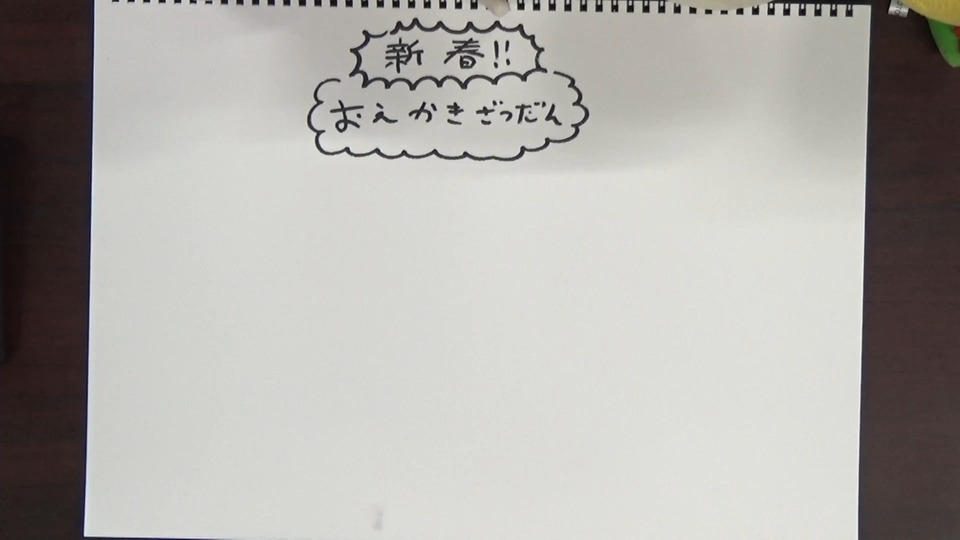 新春!!
おえかきざつだん